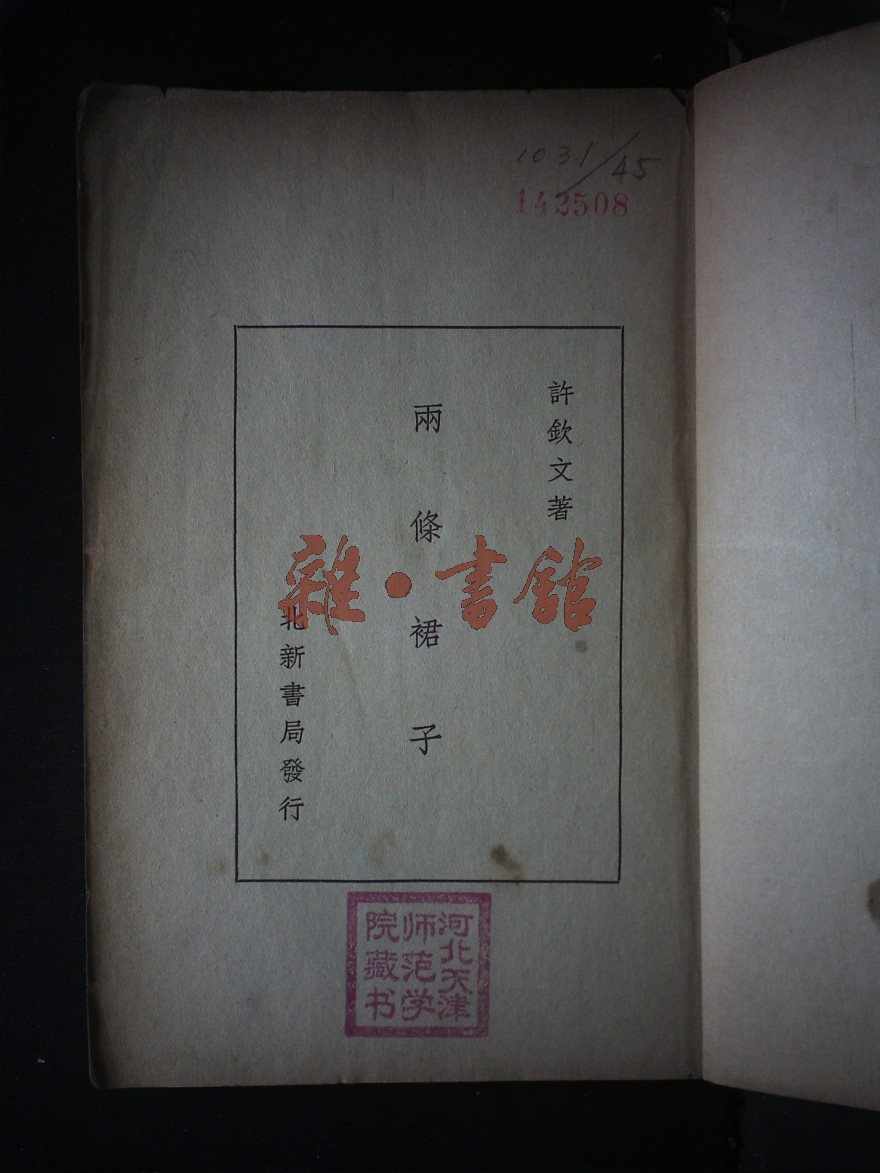 1031/45
142508
許欽文著
兩條裙子
北新書局發行
雜·書館
河北天津
师范学
院藏书